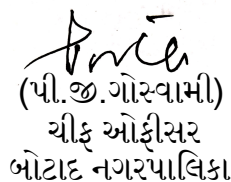 (પી.જી.ગોસ્વામી)
ચીફ ઓફીસર
બોટાદ નગરપાલિકા